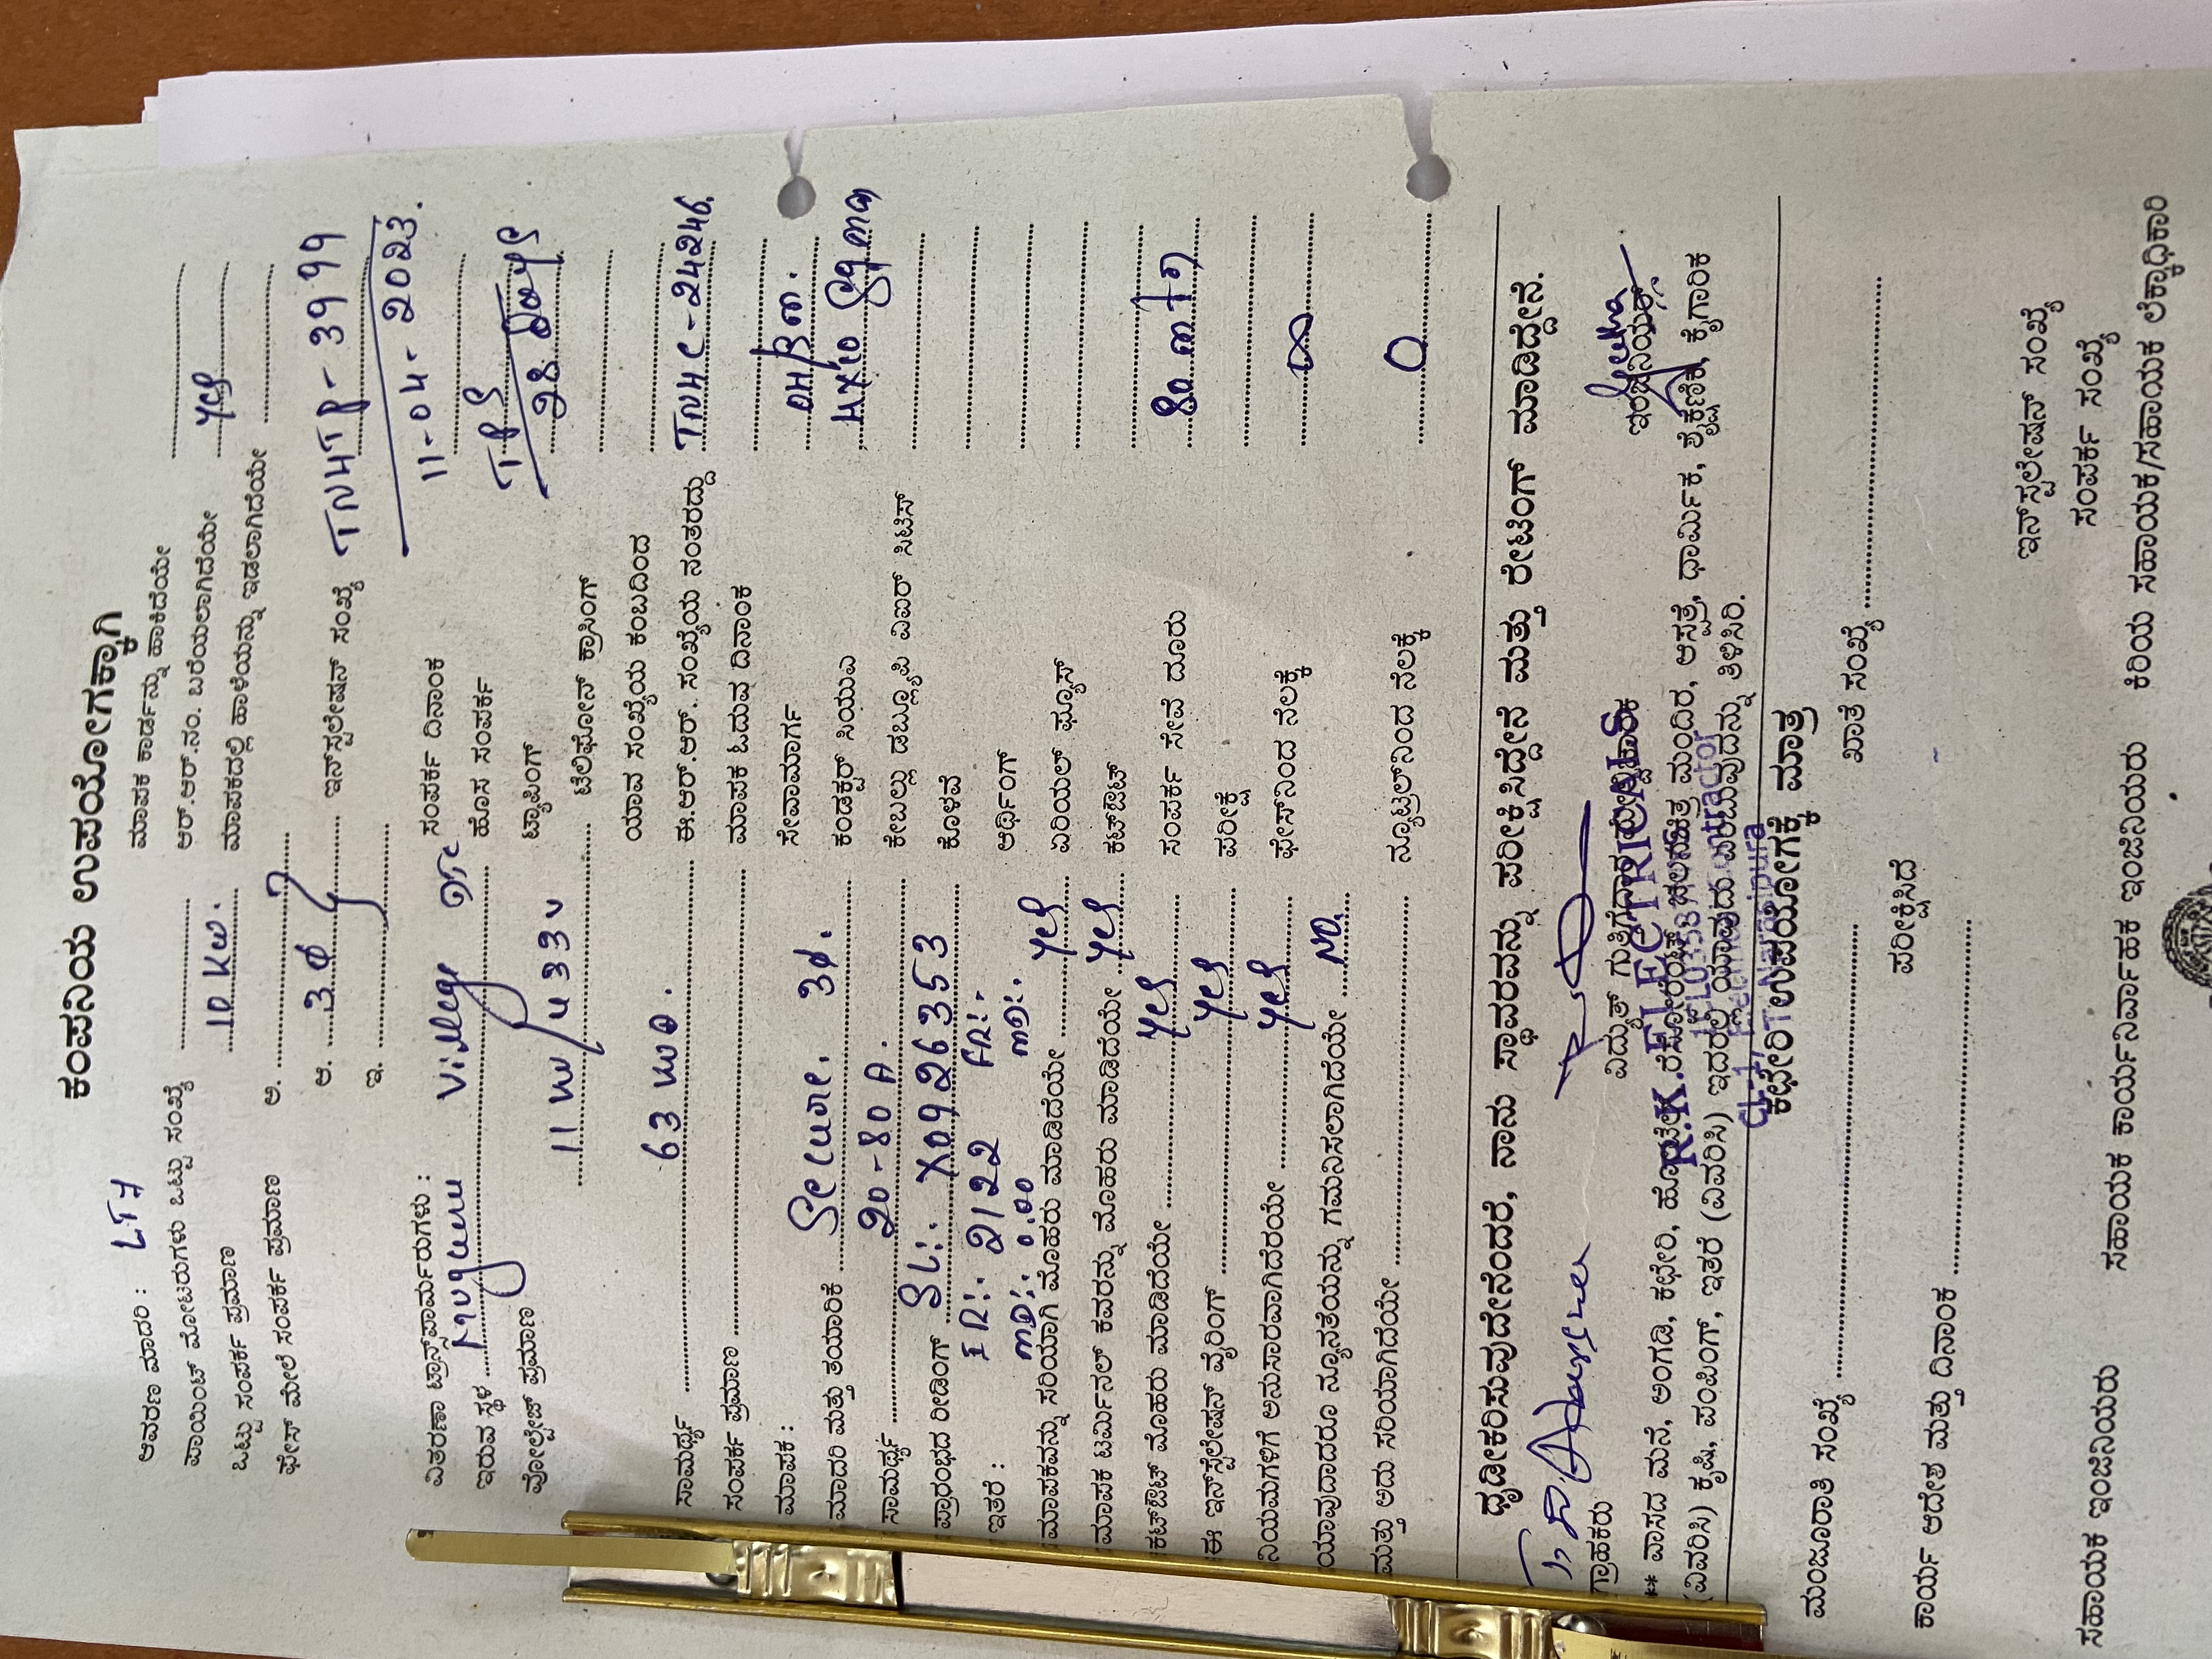 ಕಂಪನಿಯ ಉಪಯೋಗಕ್ಕಾಗಿ
ಆವರಣ ಮಾದರಿ : LT7 ಮಾಪಕ ಕಾರ್ಡನ್ನು ಹಾಕಿದೆಯೇ
ಪಾಯಿಂಟ್ ಮೋಟರುಗಳು ಒಟ್ಟು ಸಂಖ್ಯೆ ಆರ್.ಆರ್.ನಂ. ಬರೆಯಲಾಗಿದೆಯೇ yes
ಒಟ್ಟು ಸಂಪರ್ಕ ಪ್ರಮಾಣ 10 KW. ಮಾಪಕದಲ್ಲಿ ಹಾಳೆಯನ್ನು ಇಡಲಾಗಿದೆಯೇ
ಫೇಸ್ ಮೇಲೆ ಸಂಪರ್ಕ ಪ್ರಮಾಣ ಅ.
ಆ. 3 Ø ಇನ್‌ಸ್ಟಲೇಷನ್ ಸಂಖ್ಯೆ TNHTP-3999
ಇ.
ವಿತರಣಾ ಟ್ರಾನ್ಸ್‌ಫಾರ್ಮರುಗಳು : ಸಂಪರ್ಕ ದಿನಾಂಕ 11-04-2023.
ಇರುವ ಸ್ಥಳ Village ಹೊಸ ಸಂಪರ್ಕ TPS
ವೋಲ್ಟೇಜ್ ಪ್ರಮಾಣ 11 KV / 433 V ಟ್ಯಾಪಿಂಗ್ 28 Days
ಟೆಲಿಫೋನ್ ಕ್ರಾಸಿಂಗ್
ಯಾವ ಸಂಖ್ಯೆಯ ಕಂಬದಿಂದ
ಸಾಮರ್ಥ್ಯ 63 ಈ.ಆರ್.ಆರ್. ಸಂಖ್ಯೆಯ ನಂತರದ್ದು TNHC-24246.
ಸಂಪರ್ಕ ಪ್ರಮಾಣ ಮಾಪಕ ಓದುವ ದಿನಾಂಕ
ಮಾಪಕ : ಸೇವಾಮಾರ್ಗ
ಮಾದರಿ ಮತ್ತು ತಯಾರಿಕೆ Secure. 3Ø. ಕಂಡಕ್ಟರ್ ಸಿಯುಎ
ಸಾಮರ್ಥ್ಯ 20-80 A. ಕೇಬಲ್ಲು ಡಬ್ಲ್ಯೂಪಿ ವಿಐಆರ್ ಸಿಟಿಸ್ 4X10 Sqmm
ಪ್ರಾರಂಭದ ರೀಡಿಂಗ್ SL:. X0926353 ಕೊಳವೆ
ಇತರೆ : IR:. 2122 FR:. ಆರ್ಥಿಂಗ್
MD:. 0.00 MD:.
ಮಾಪಕವನ್ನು ಸರಿಯಾಗಿ ಮೊಹರು ಮಾಡಿದೆಯೇ yes ಏರಿಯಲ್ ಫ್ಯೂಸ್
ಮಾಪಕ ಟರ್ಮಿನಲ್ ಕವರನ್ನು ಮೊಹರು ಮಾಡಿದೆಯೇ yes ಕಟ್‌ಔಟ್
ಕಟ್‌ಔಟ್ ಮೊಹರು ಮಾಡಿದೆಯೇ yes ಸಂಪರ್ಕ ಸೇವೆ ದೂರು
ಈ ಇನ್‌ಸ್ಟಲೇಷನ್ ವೈರಿಂಗ್ yes ಪರೀಕ್ಷೆ
ನಿಯಮಗಳಿಗೆ ಅನುಸಾರವಾಗಿದೆರೆಯೇ yes ಫೇಸ್‌ನಿಂದ ನೆಲಕ್ಕೆ ∞
ಯಾವುದಾದರೂ ನ್ಯೂನತೆಯನ್ನು ಗಮನಿಸಲಾಗಿದೆಯೇ NO.
ಮತ್ತು ಅದು ಸರಿಯಾಗಿದೆಯೇ ನ್ಯೂಟ್ರಲ್‌ನಿಂದ ನೆಲಕ್ಕೆ 0
ದೃಢೀಕರಿಸುವುದೇನೆಂದರೆ, ನಾನು ಸ್ಥಾವರವನ್ನು ಪರೀಕ್ಷಿಸಿದ್ದೇನೆ ಮತ್ತು ರೇಟಿಂಗ್ ಮಾಡಿದ್ದೇನೆ.
ಗ್ರಾಹಕರು ವಿದ್ಯುತ್ ಗುತ್ತಿಗೆದಾರ ಇಂಜಿನಿಯರ್
R.K. ELECTRICALS
** ವಾಸದ ಮನೆ, ಅಂಗಡಿ, ಕಛೇರಿ, ಹೋಟೆಲ್, ರೆಸ್ಟೋರೆಂಟ್, ಚಲನಚಿತ್ರ ಮಂದಿರ, ಆಸ್ಪತ್ರೆ, ಧಾರ್ಮಿಕ, ಶೈಕ್ಷಣಿಕ, ಕೈಗಾರಿಕೆ
(ವಿವರಿಸಿ) ಕೃಷಿ, ಪಂಪಿಂಗ್, ಇತರೆ (ವಿವರಿಸಿ) ಇದರಲ್ಲಿ ಯಾವುದು ಎಂಬುವುದನ್ನು ತಿಳಿಸಿರಿ.
ಕಛೇರಿ ಉಪಯೋಗಕ್ಕೆ ಮಾತ್ರ
ಮಂಜೂರಾತಿ ಸಂಖ್ಯೆ ಖಾತೆ ಸಂಖ್ಯೆ
ಪರೀಕ್ಷಿಸಿದೆ
ಕಾರ್ಯ ಆದೇಶ ಮತ್ತು ದಿನಾಂಕ
ಇನ್‌ಸ್ಟಲೇಷನ್ ಸಂಖ್ಯೆ
ಸಂಪರ್ಕ ಸಂಖ್ಯೆ
ಸಹಾಯಕ ಇಂಜಿನಿಯರು ಸಹಾಯಕ ಕಾರ್ಯನಿರ್ವಾಹಕ ಇಂಜಿನಿಯರು ಕಿರಿಯ ಸಹಾಯಕ/ಸಹಾಯಕ ಲೆಕ್ಕಾಧಿಕಾರಿ